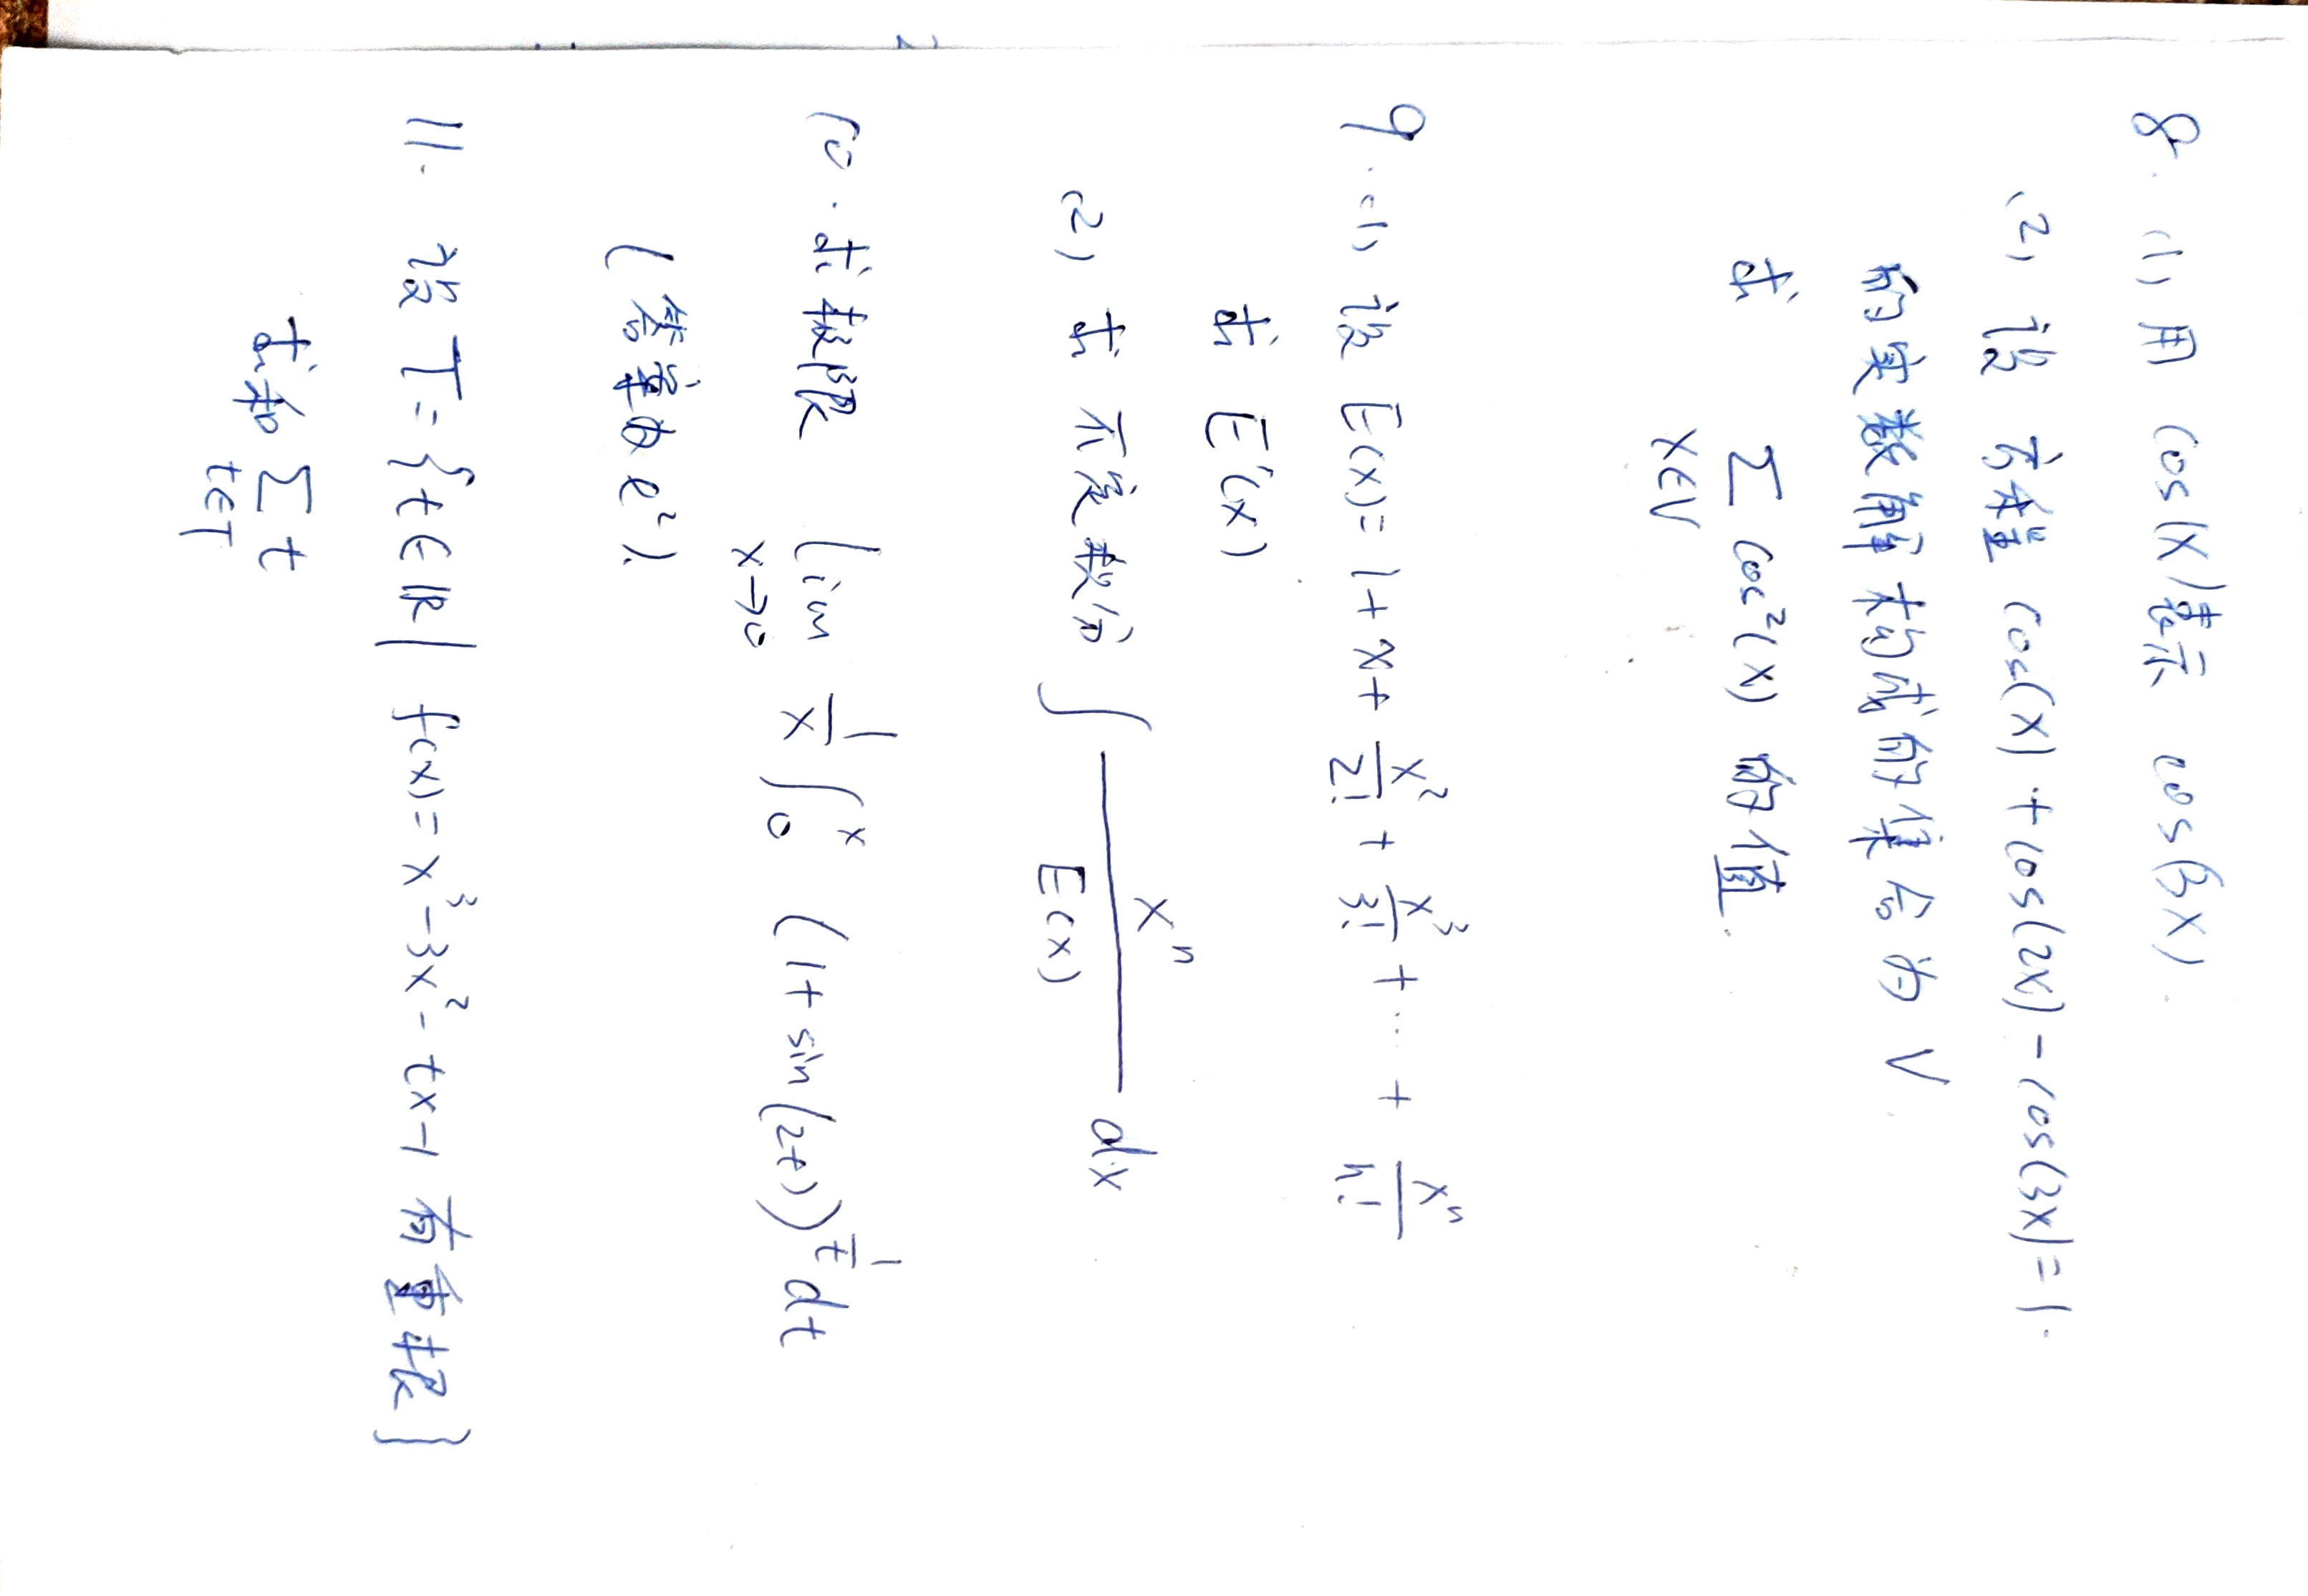 8. (1) 用 cos(x)表示 cos(3x).
(2) 设方程 cos(x) + cos(2x) - cos(3x) = 1.
的实数解构成的集合为 V
求 ∑ cos²(x) 的值.
x∈V
9. (1) 设 E(x) = 1 + x + x²/2! + x³/3! + ... + xⁿ/n!
求 E'(x)
(2) 求 不定积分 ∫ xⁿ/E(x) dx
10. 求极限 lim 1/x ∫₀ˣ (1 + sin(2t))^(1/t) dt
x→0
(答案为 e²).
11. 设 T = { t ∈ ℝ | f(x) = x³ - 3x² - tx - 1 有重根 }
求和 ∑ t
t∈T